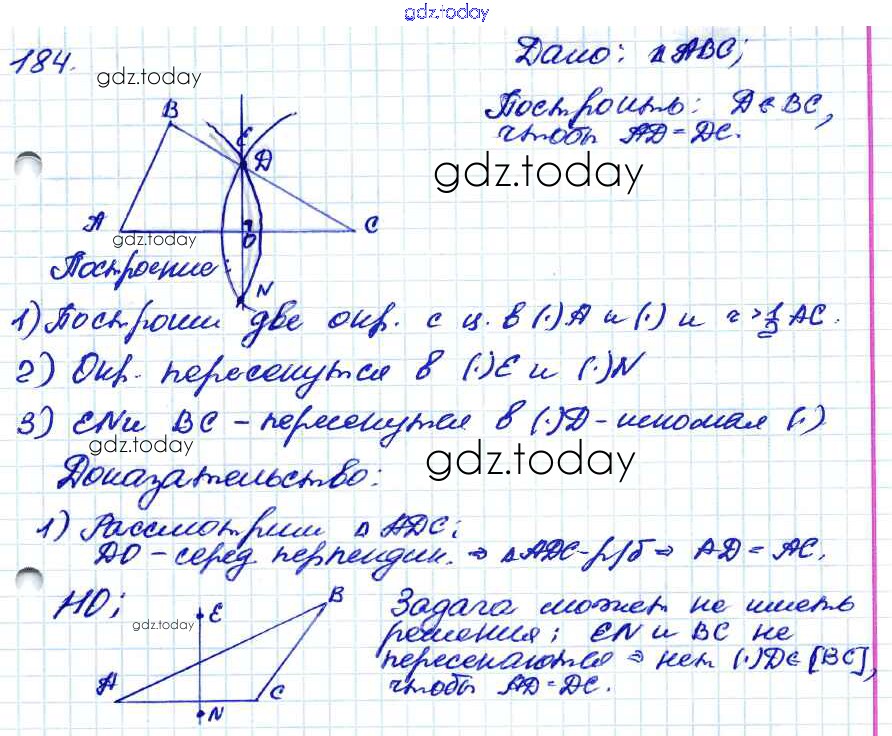 gdz.today
184.
gdz.today
Дано: △ABC;
Построить: D∈BC,
чтобы AD=DC.
gdz.today
B
E
D
A
O
C
gdz.today
N
Построение:
1) Построим две окр. с ц. в (·)A и (·) и r > 1/2 AC.
2) Окр. пересекутся в (·)E и (·)N
3) EN и BC – пересекутся в (·)D – искомая (·)
gdz.today
gdz.today
Доказательство:
1) Рассмотрим △ADC;
DO – серед. перпендик. ⇒ △ADC – р/б ⇒ AD = AC.
НО;
E
B
gdz.today
A
C
N
Задача может не иметь
решения; EN и BC не
пересекаются ⇒ нет (·)D∈[BC],
чтобы AD=DC.